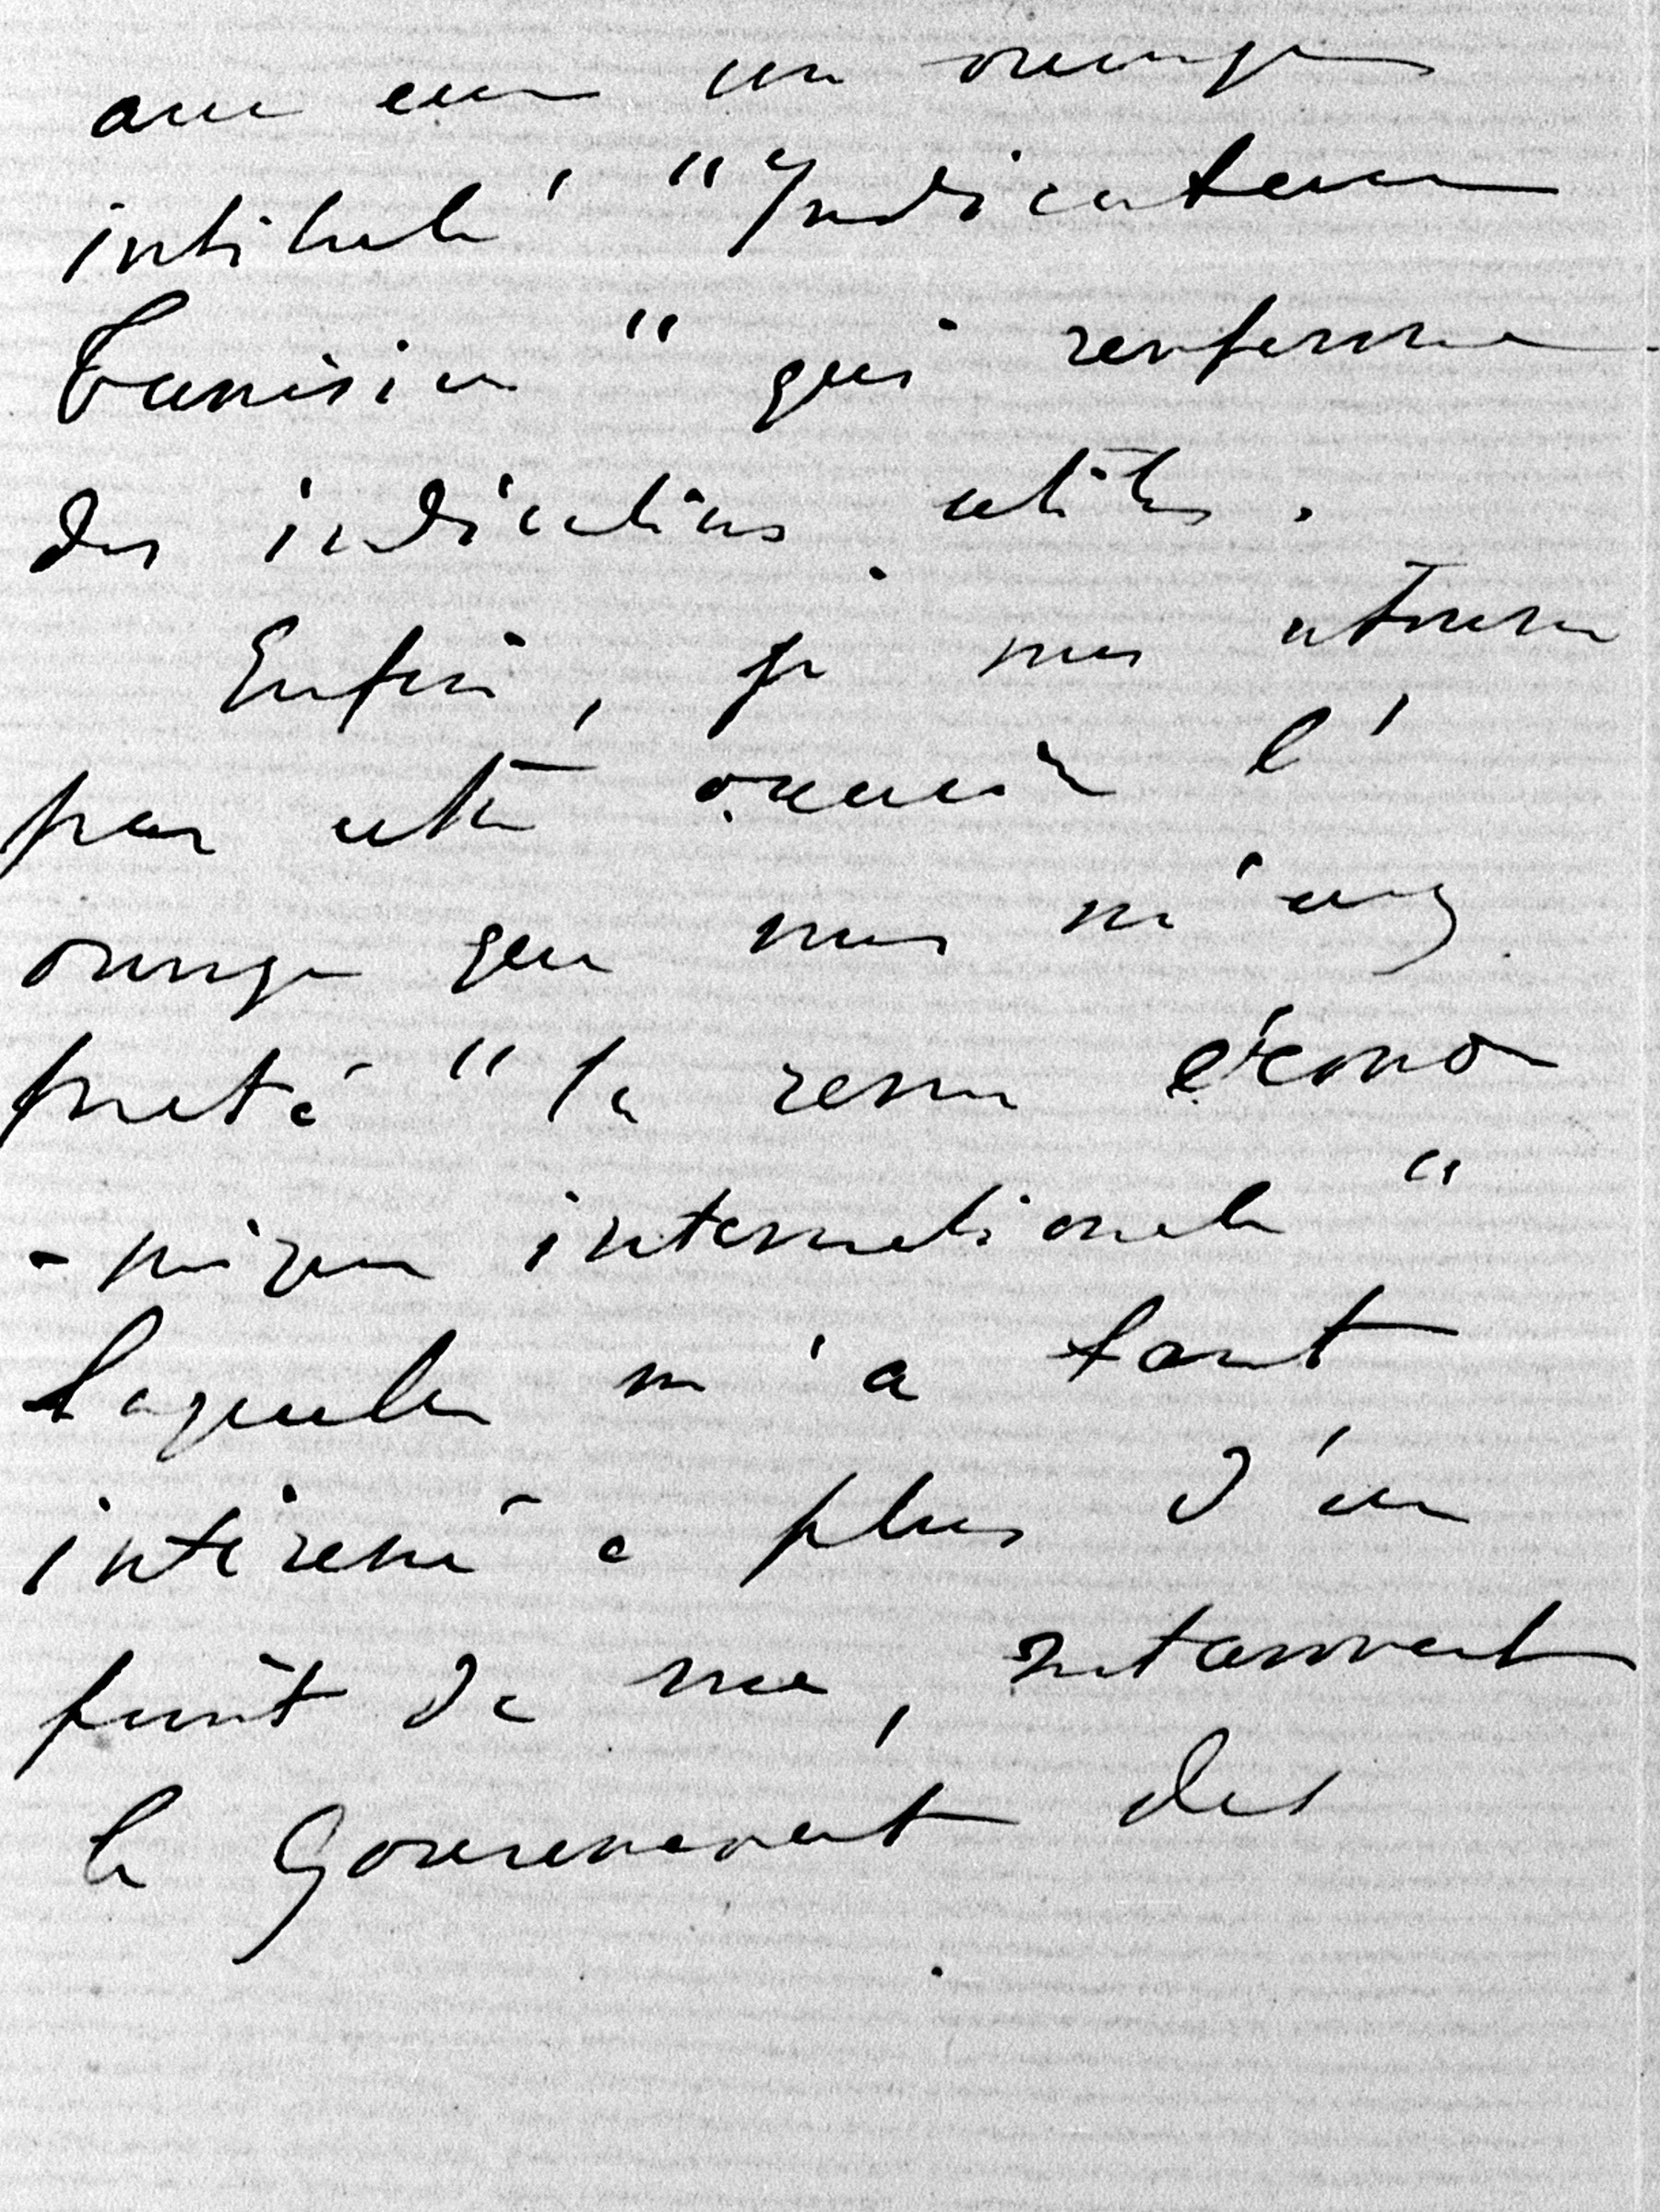 avec eux un ouvrage
intitulé "Indicateur
Tunisien" qui renferme
des indications utiles.
Enfin, je vous retourne
par cette occasion l'
ouvrage que vous m'avez
prêté "la revue écono
-mique internationale"
laquelle m'a tant
intéressé à plus d'un
point de vue, notamment
le Gouvernement des